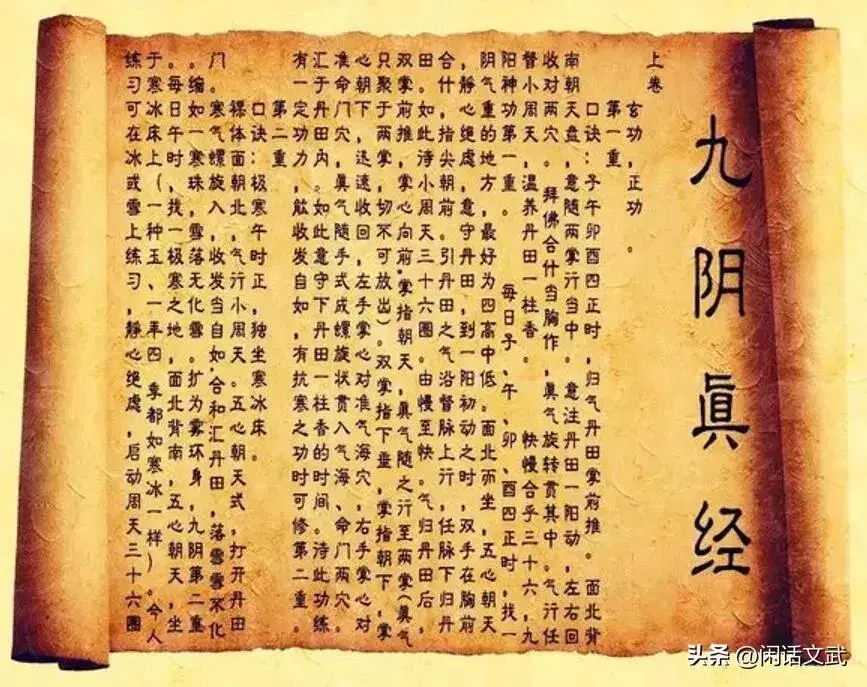 九阴眞经
上卷
玄功，正功。
第一重
口诀：子午卯酉四正时，归气丹田掌前推。 面北背
南朝天盘，意随两掌行当中。意注丹田一阳动，左右回
收对两穴。 拜佛合什当胸作，眞气旋转贯其中。气行任
督小周天，温养丹田一柱香。 快慢合乎三十六，九
阳神功第一重。 每日子、午、卯、酉四正时，找一
阴气重的地方，最好为四高中低。面北而坐，五心朝天
，静心绝虑，意守丹田，到一阳初动之时，双手在胸前
合什，指尖朝前。引丹田之气沿督脉上行，任脉下归丹
田。如此待小周天三十六圈。由慢至快。气归丹田后，
双掌前推，掌心向前，掌指朝天，眞气随之行至两掌（眞气
只聚于两掌，切不可放出）。双掌指下垂，掌指朝下，掌
心朝下，迅速收回，左手掌心对准气海穴，右手掌心对
准命门穴，眞气随手式成螺旋状贯入气海、命门两穴。
汇于丹田内。如此意守下丹田一柱香的时间。待此功练
有一定功力，能收发自如，有抗寒之功时可修第二重。
第二重
口诀：极寒午时正，独坐寒冰床。
裸体面朝北，气行小周天。五心朝天式，打开丹田
门。 寒气螺旋入，收发当自如，合和汇丹田，落雪雪不化
。编如一寒珠，雪落无化雪。扩为雾环身，九阴第二重
。每日午时，找一极寒之地，面北背南，五心朝天，坐
于寒冰床上（一种玉、一年四季都如寒冰一样）。今人
练习可在冰或雪上练习，静心绝虑，启动周天三十六圈
头条 @闲话文武